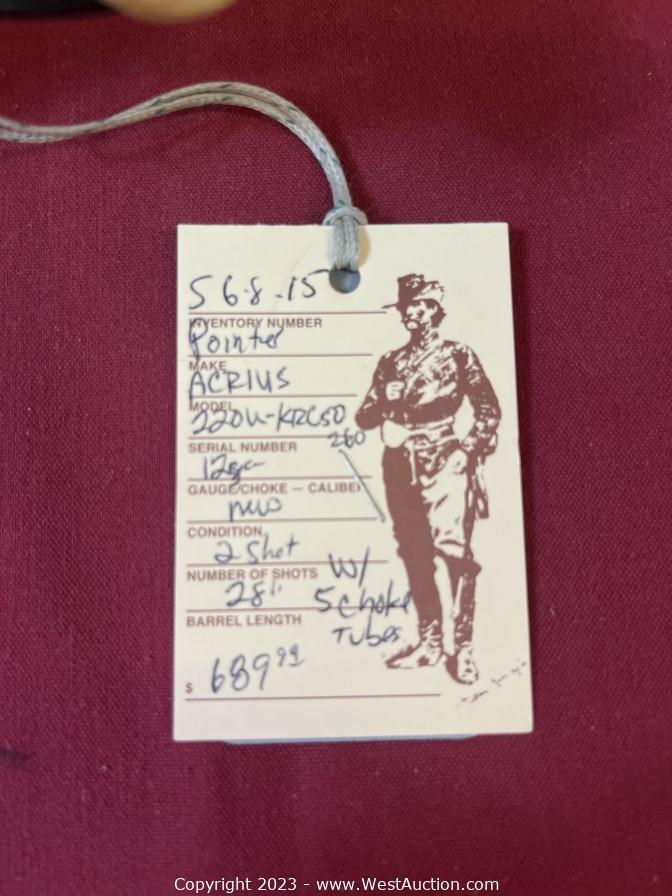 56-8-15
INVENTORY NUMBER
Pointer
MAKE
ACRIUS
MODEL
220U-KRC50
260
SERIAL NUMBER
12ga
GAUGE/CHOKE — CALIBER
new
CONDITION
2 Shot
NUMBER OF SHOTS
28"
BARREL LENGTH
W/
5 choke
Tubes
$ 689.99
Copyright 2023 - www.WestAuction.com